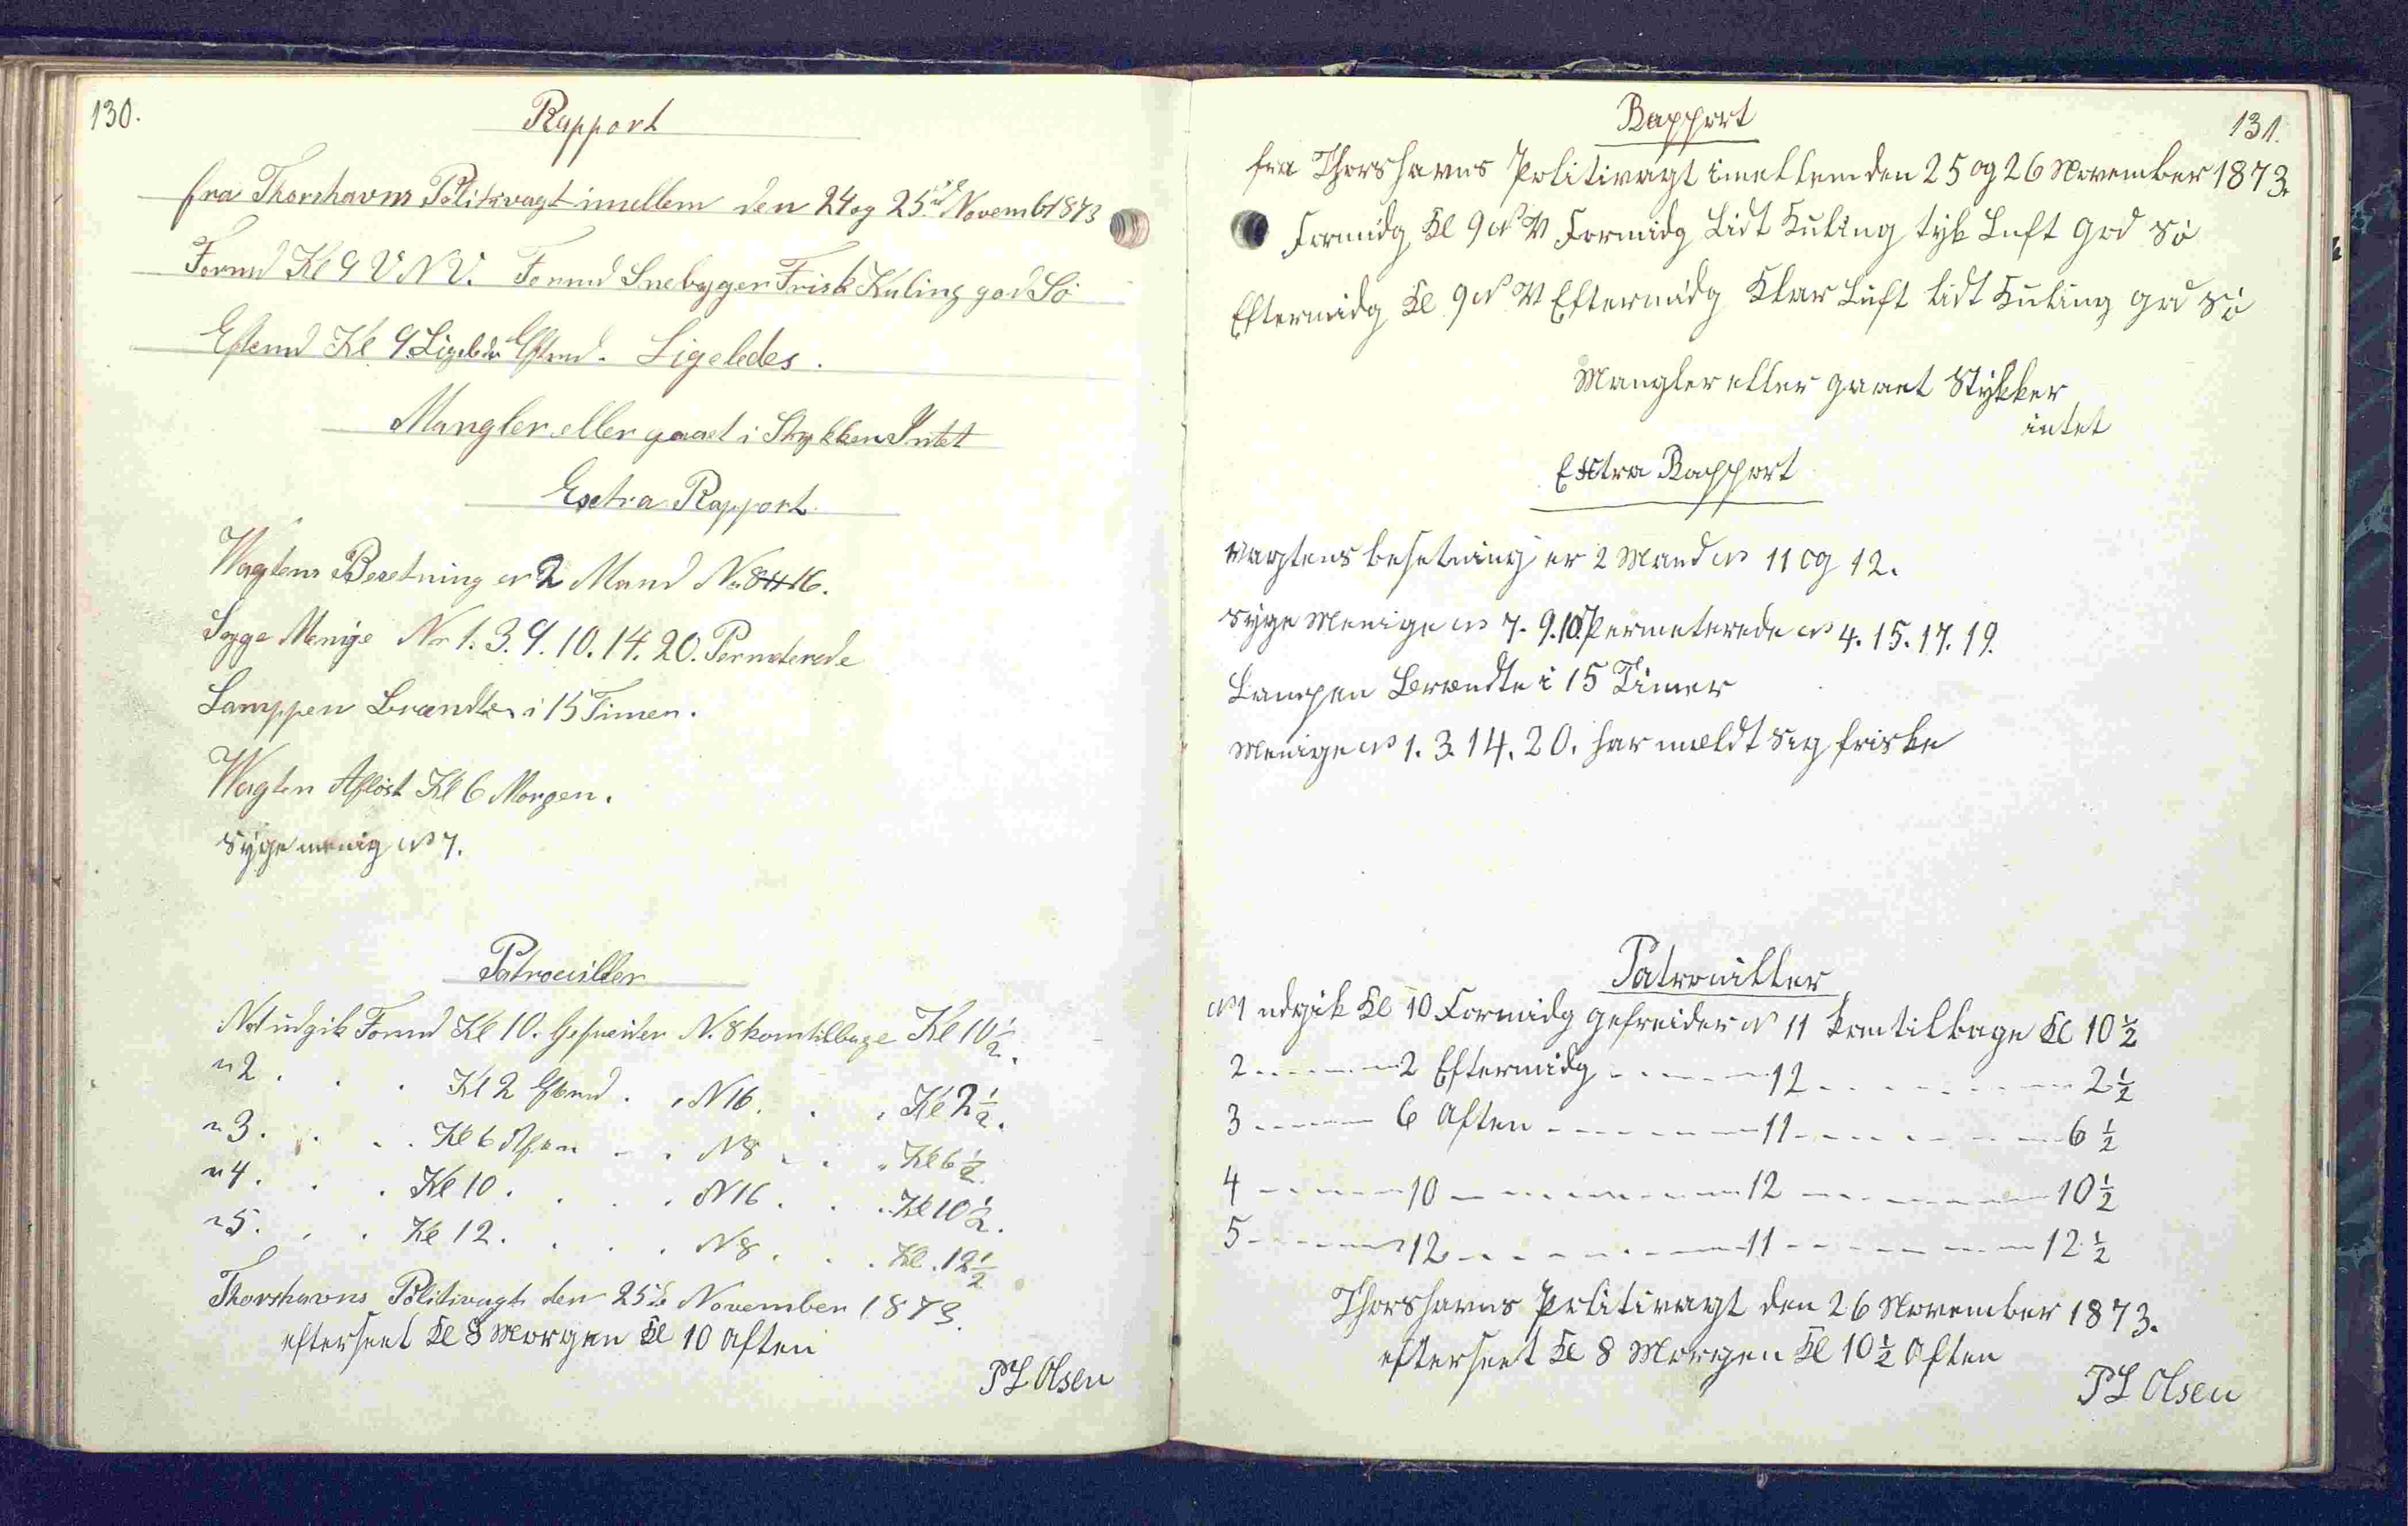 130.
Rapport
fra Thorshavns Politivagt imellem den 24 og 25de Novemb 1873
Formd Kl 9 V N V. Formd Snebyger Frisk Kuling god Sö
Eftemd Kl. 9 Ligeledes Eftmd. Ligeledes.
Mangler eller gaaet i Stykker Intet
Extra Rapport.
Wagtens Besetning er 2 Mand No 8 # 16.
Syge Menige Nr 1. 3. 9. 10. 14. 20. Permeterede
Lamppen Brændte i 15 Timer.
Wagten Aflöst Kl 6 Morgen.
Syge menig No 7.
Patrouiller
No 1 udgik Formd Kl 10. Gefreider N. 8 kom tilbage Kl 10 1/2.
" 2 . . . Kl 2 Eftmd . . N 16. . . Kl 2 1/2.
" 3. . . . Kl 6 Aften . . N 8 . . . Kl 6 1/2.
" 4. . . Kl 10 . . . . N 16 . . . Kl 10 1/2.
" 5. . . Kl 12. . . . N 8 . . . Kl. 12 1/2
Thorshavns Politivagt den 25de November 1873.
efterseet Kl 8 Morgen Kl 10 Aften
P L Olsen
131.
Rapport
fra Thorshavns Politivagt imellem den 25 og 26 November 1873.
Formidg Kl 9 N V Formidg Lidt Kuling tyk Luft God Sö
Eftermidg Kl 9 N V Eftermidg Klar Luft lidt Kuling god Sö
Mangler eller gaaet Stykker
intet
Extra Rapport
Vagtens besetning er 2 Mand No 11 og 12.
Syge Menige No 7. 9. 10. Permeterede No 4. 15. 17. 19.
Lampen Brændte i 15 Timer
Menige No 1. 3. 14. 20. har mældt sig friske
Patrouiller
No 1 udgik Kl 10 Formidg gefreider N 11 kom tilbage Kl 10 1/2
2 - - - - - 2 Eftermidg - - - - - 12 - - - - - - - 2 1/2
3 - - - - - 6 Aften - - - - - - 11 - - - - - - - 6 1/2
4 - - - - - 10 - - - - - - - - 12 - - - - - - - 10 1/2
5 - - - - - 12 - - - - - - - - 11 - - - - - - - 12 1/2
Thorshavns Politivagt den 26 November 1873.
efterseet Kl 8 Morgen Kl 10 1/2 Aften
P L Olsen